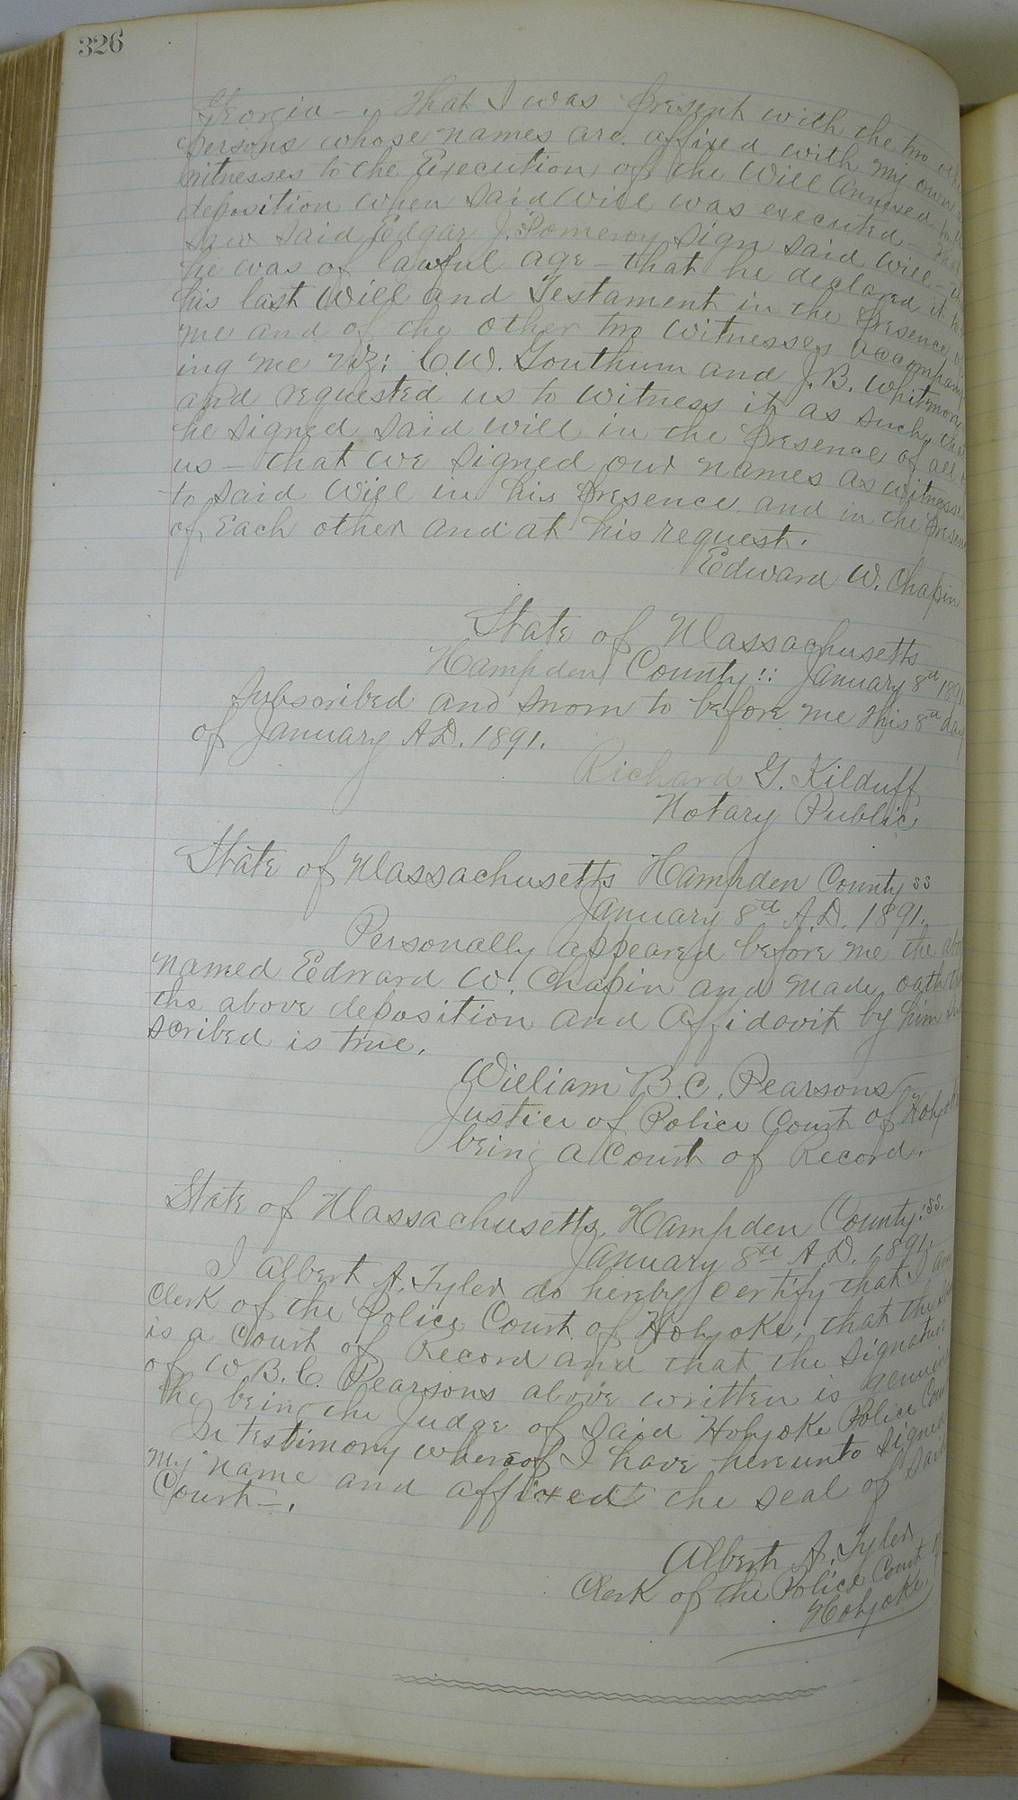 326
Georgia -, that I was present with the two
persons whose names are affixed with my own
witnesses to the Execution of the Will annexed
deposition when said Will was executed
saw said Edgar J. Pomeroy sign said Will -
he was of lawful age - that he declared it
his last Will and Testament in the presence
me and of the other two witnesses accompany
ing me viz: C. W. Southum and J. B. Whitmore
and requested us to witness it as such, that
he signed said will in the presence of all
us - that we signed our names as witnesses
to said Will in his presence and in the presence
of Each other and at his request.
Edward W. Chapin
State of Massachusetts
Hampden County :: January 8th 1891
Subscribed and sworn to before me this 8th day
of January A.D. 1891.
Richard G. Kilduff
Notary Public
State of Massachusetts Hampden County ss
January 8th A.D. 1891.
Personally appeared before me the
named Edward W. Chapin and made oath
the above deposition and affidavit by him
scribed is true.
William B. C. Pearsons
Justice of Police Court of Holyoke
being a Court of Record.
State of Massachusetts, Hampden County: ss.
January 8th A.D. 1891.
I Albert A. Tyler do hereby certify that I am
Clerk of the Police Court of Holyoke, that the
is a Court of Record and that the signature
of W. B. C. Pearsons above written is genuine
he being the Judge of said Holyoke Police Court
In testimony whereof I have hereunto signed
my name and affixed the seal of said
Court -.
Albert A. Tyler
Clerk of the Police Court of
Holyoke